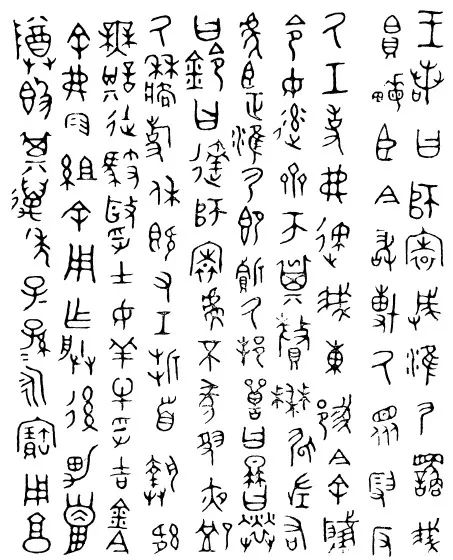 王若曰師㝨𢦏淮尸繇我
帛畮臣今敢博厥眾叚反
厥工吏弗速我東或今余肇
令女率齊帀㠱釐僰左右
虎臣正淮尸即厥邦獸曰冉曰
曰鈴曰達師㝨虔不墜夙夜卹
厥牆事休既又工折首執訊
無諆徒馭毆孚士女羊牛孚吉金
今余弗叚組余用乍朕後男巤
尊簋其萬年子孫永寶用享